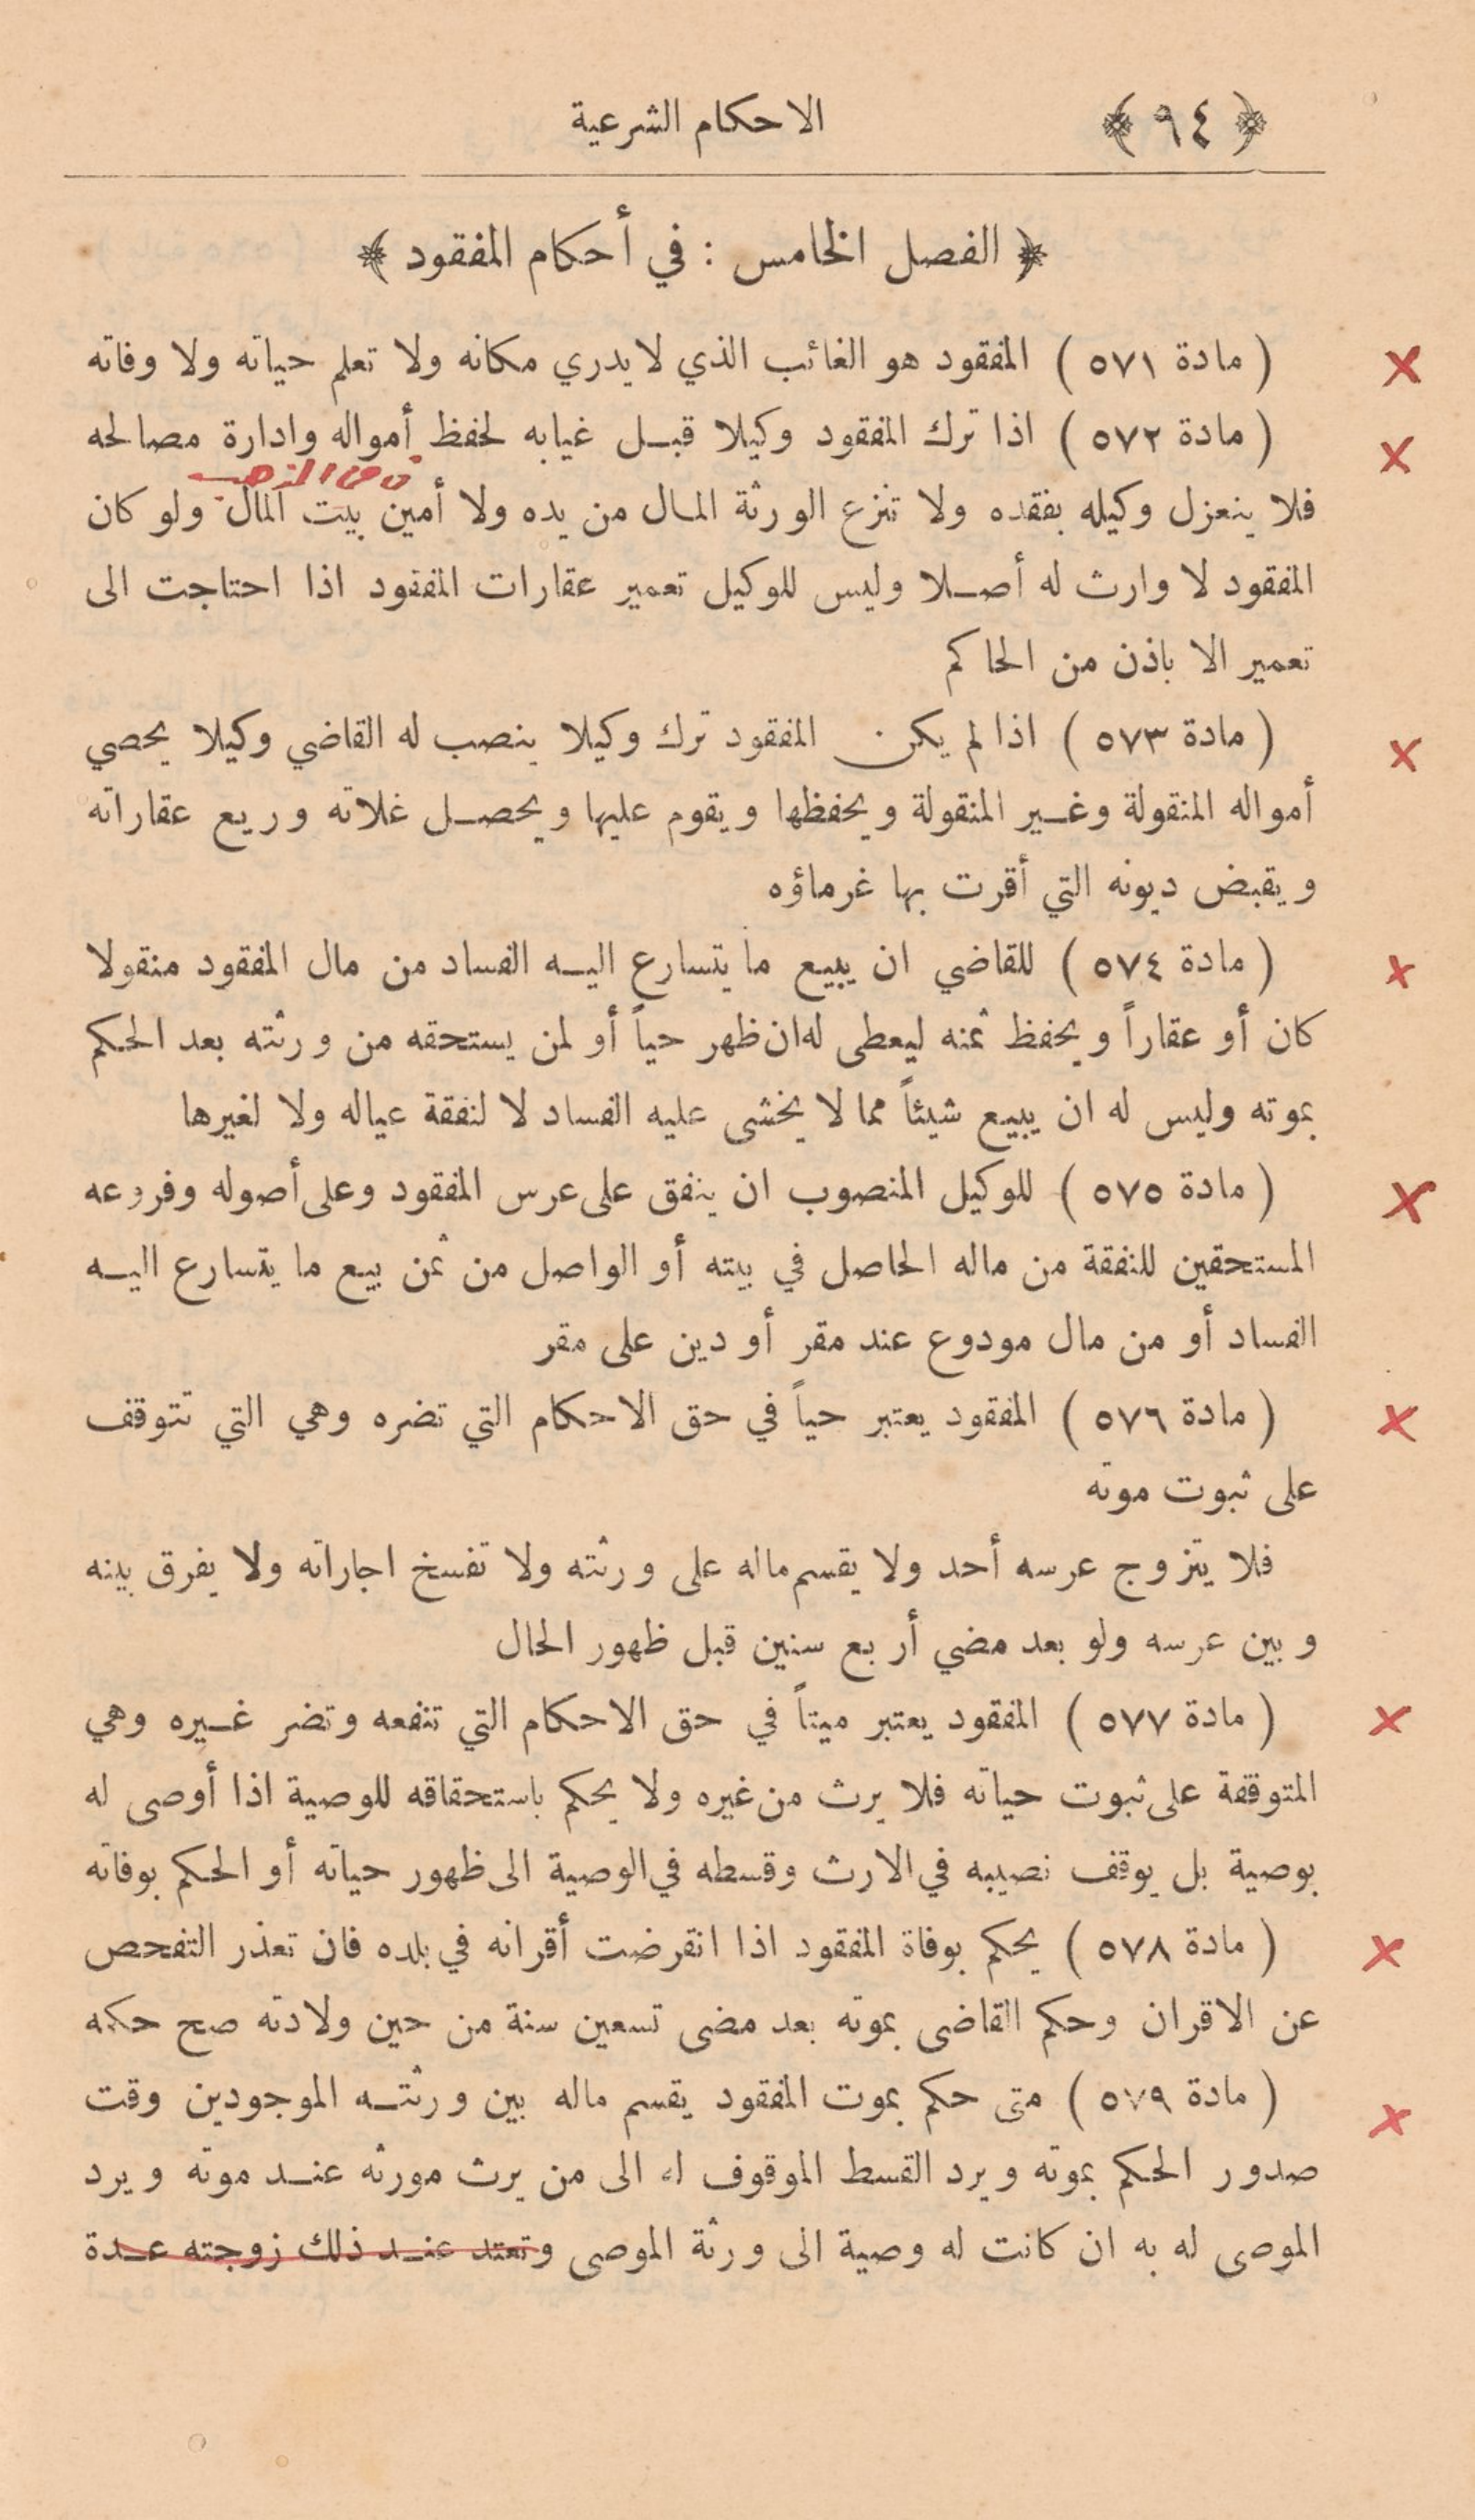 ﴿ ٩٤ ﴾ الاحكام الشرعية
﴿ الفصل الخامس : في أحكام المفقود ﴾
( مادة ٥٧١ ) المفقود هو الغائب الذي لا يدري مكانه ولا تعلم حياته ولا وفاته
( مادة ٥٧٢ ) اذا ترك المفقود وكيلا قبل غيابه لحفظ أمواله وادارة مصالحه
فلا ينعزل وكيله بفقده ولا تنزع الورثة المال من يده ولا أمين بيت المال ولو كان
المفقود لا وارث له أصلا وليس للوكيل تعمير عقارات المفقود اذا احتاجت الى
تعمير الا باذن من الحاكم
( مادة ٥٧٣ ) اذا لم يكن المفقود ترك وكيلا ينصب له القاضي وكيلا يحصي
أمواله المنقولة وغير المنقولة ويحفظها ويقوم عليها ويحصل غلاته وريع عقاراته
ويقبض ديونه التي أقرت بها غرماؤه
( مادة ٥٧٤ ) للقاضي ان يبيع ما يتسارع اليه الفساد من مال المفقود منقولا
كان أو عقاراً ويحفظ ثمنه ليعطى له ان ظهر حياً أو لمن يستحقه من ورثته بعد الحكم
بموته وليس له ان يبيع شيئاً مما لا يخشى عليه الفساد لا لنفقة عياله ولا لغيرها
( مادة ٥٧٥ ) للوكيل المنصوب ان ينفق على عرس المفقود وعلى أصوله وفروعه
المستحقين للنفقة من ماله الحاصل في بيته أو الواصل من ثمن بيع ما يتسارع اليه
الفساد أو من مال مودوع عند مقر أو دين على مقر
( مادة ٥٧٦ ) المفقود يعتبر حياً في حق الاحكام التي تضره وهي التي تتوقف
على ثبوت موته
فلا يتزوج عرسه أحد ولا يقسم ماله على ورثته ولا تفسخ اجاراته ولا يفرق بينه
وبين عرسه ولو بعد مضي أربع سنين قبل ظهور الحال
( مادة ٥٧٧ ) المفقود يعتبر ميتاً في حق الاحكام التي تنفعه وتضر غيره وهي
المتوقفة على ثبوت حياته فلا يرث من غيره ولا يحكم باستحقاقه للوصية اذا أوصى له
بوصية بل يوقف نصيبه في الارث وقسطه في الوصية الى ظهور حياته أو الحكم بوفاته
( مادة ٥٧٨ ) يحكم بوفاة المفقود اذا انقرضت أقرانه في بلده فان تعذر التفحص
عن الاقران وحكم القاضى بموته بعد مضى تسعين سنة من حين ولادته صح حكمه
( مادة ٥٧٩ ) متى حكم بموت المفقود يقسم ماله بين ورثته الموجودين وقت
صدور الحكم بموته ويرد القسط الموقوف له الى من يرث مورثه عند موته ويرد
الموصى له به ان كانت له وصية الى ورثة الموصى وتعتد عند ذلك زوجته عدة